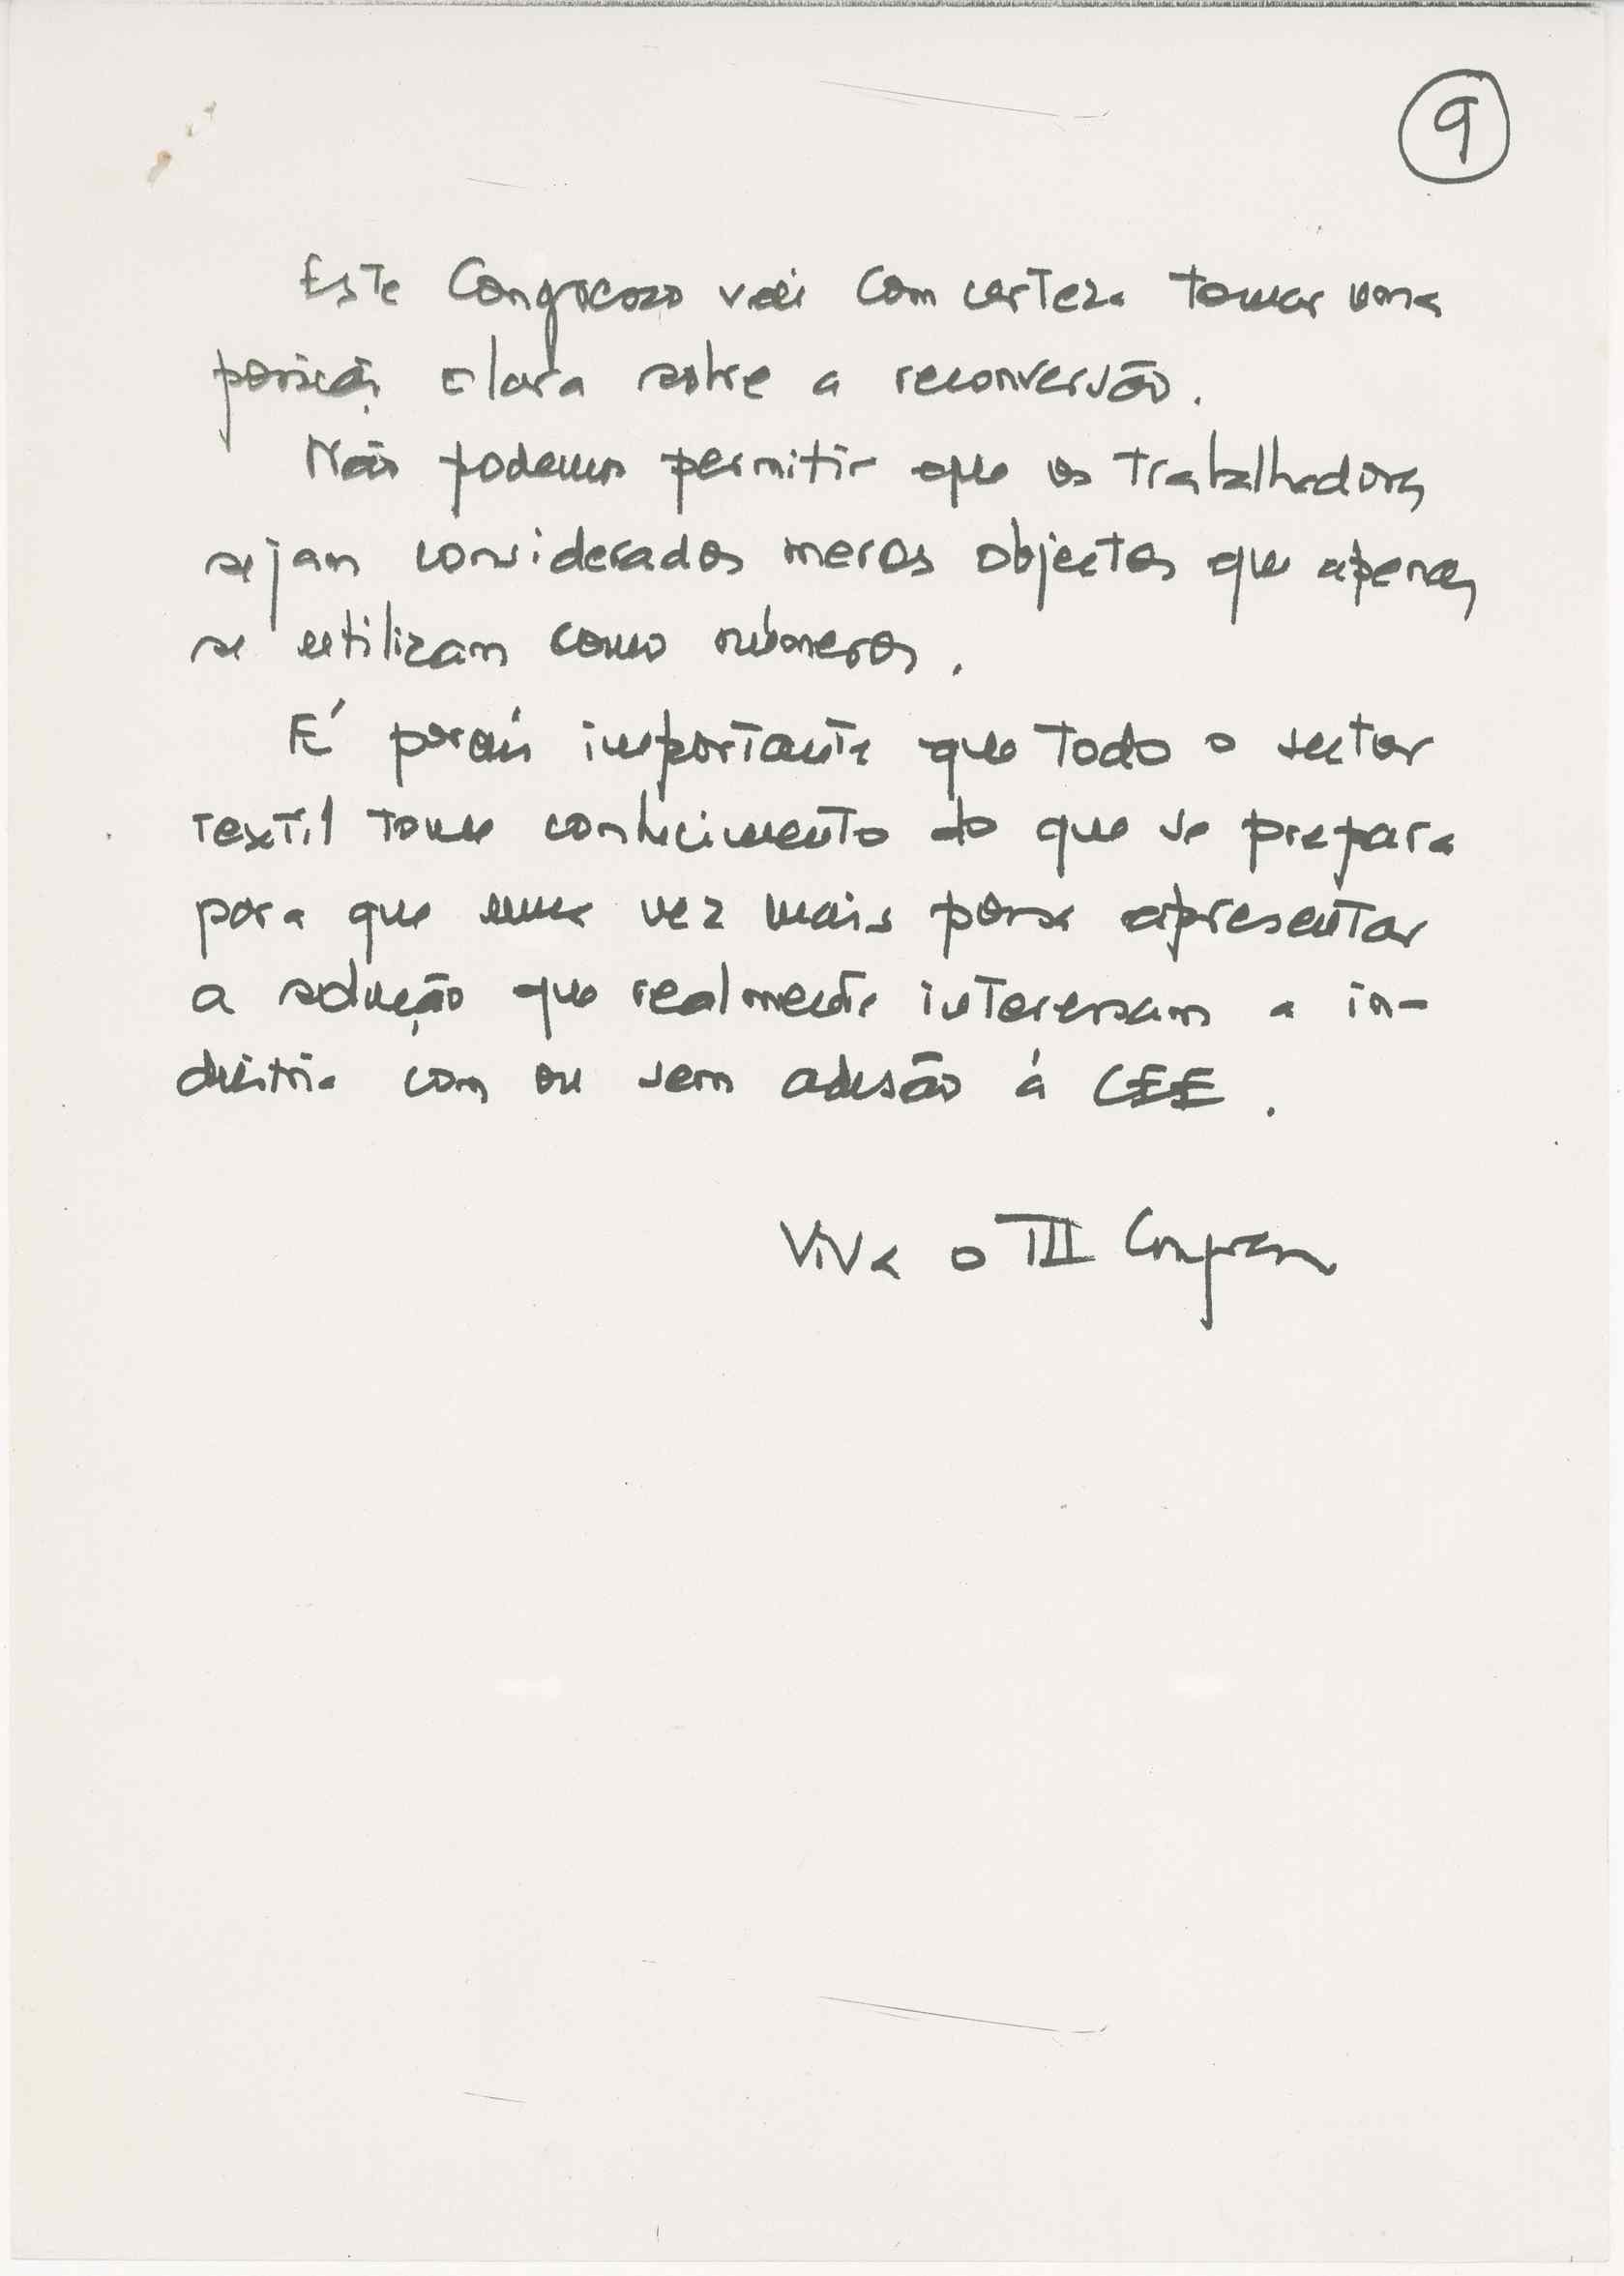 9
Este Congresso vai com certeza tomar uma
posição clara sobre a reconversão.
Não podemos permitir que os trabalhadores
sejam considerados meros objectos que apenas
se utilizam como números.
É porém importante que todo o sector
textil tome conhecimento do que se prepara
para que uma vez mais possa apresentar
a solução que realmente interessam a in-
dústria com ou sem adesão á CEE.
Viva o III Congresso